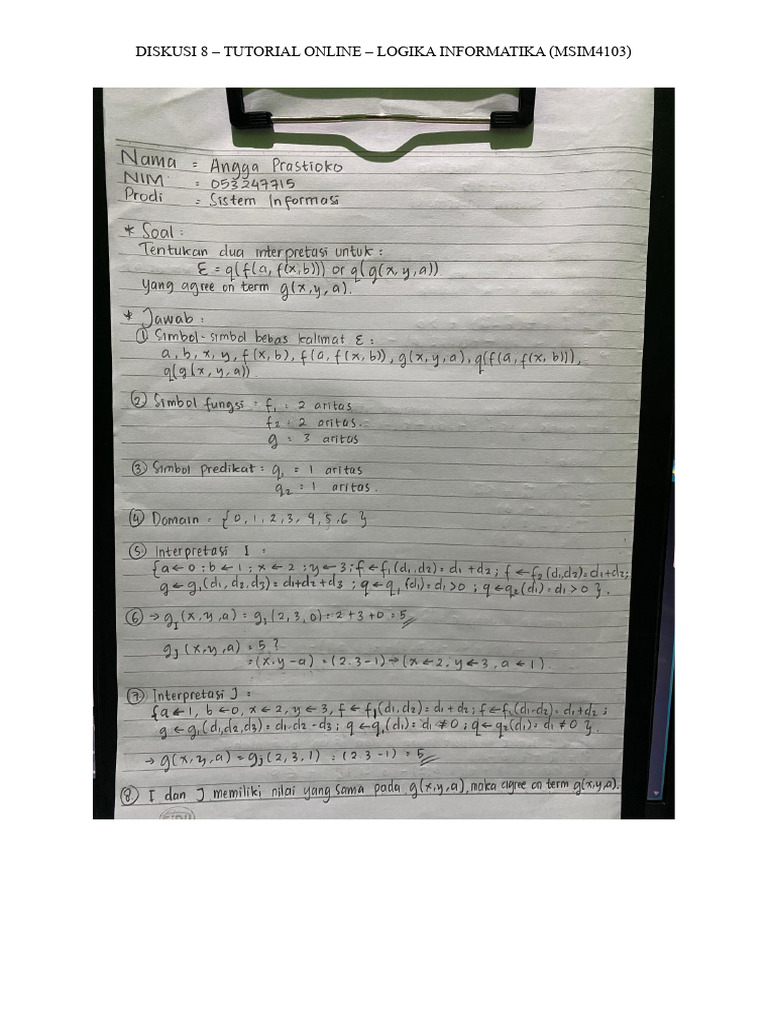 DISKUSI 8 – TUTORIAL ONLINE – LOGIKA INFORMATIKA (MSIM4103)
Nama : Angga Prastioko
NIM : 053247715
Prodi : Sistem Informasi
* Soal :
Tentukan dua interpretasi untuk :
Ɛ = q(f(a, f(x,b))) or q(g(x, y, a))
yang agree on term g(x, y, a).
* Jawab :
① Simbol-simbol bebas kalimat Ɛ :
a, b, x, y, f(x, b), f(a, f(x, b)), g(x, y, a), q(f(a, f(x, b))),
q(g(x, y, a))
② Simbol fungsi = f₁ : 2 aritas
f₂ : 2 aritas.
g : 3 aritas
③ Simbol predikat : q₁ = 1 aritas
q₂ : 1 aritas.
④ Domain : { 0, 1, 2, 3, 4, 5, 6 }
⑤ Interpretasi I :
{a ← 0 ; b ← 1 ; x ← 2 ; y ← 3 ; f ← f₁(d₁, d₂) = d₁ + d₂ ; f ← f₂(d₁, d₂) = d₁ + d₂ ;
g ← g₁(d₁, d₂, d₃) = d₁+d₂+d₃ ; q ← q₁(d₁) = d₁ > 0 ; q ← q₂(d₁) = d₁ > 0 }.
⑥ → gI(x, y, a) = g₁(2, 3, 0) = 2 + 3 + 0 = 5
gJ(x, y, a) = 5 ?
= (x.y - a) = (2.3 - 1) → (x ← 2, y ← 3, a ← 1).
⑦ Interpretasi J :
{a ← 1, b ← 0, x ← 2, y ← 3, f ← f₁(d₁. d₂) = d₁ + d₂ ; f ← f₁(d₁-d₂) = d₁ + d₂ ;
g ← g₁(d₁, d₂, d₃) = d₁.d₂ - d₃ ; q ← q₁(d₁) = d₁ ≠ 0 ; q ← q₂(d₁) = d₁ ≠ 0 }.
→ g(x, y, a) = gJ(2, 3, 1) = (2.3 - 1) = 5
⑧ I dan J memiliki nilai yang sama pada g(x, y, a), maka agree on term g(x, y, a).